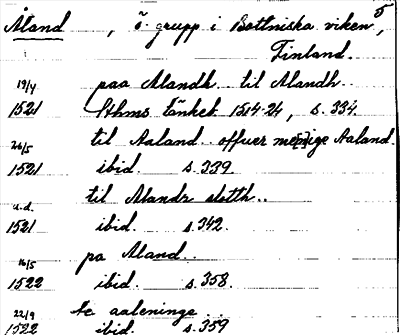 Åland , ö-grupp i Bottniska viken,
Finland.
19/4 paa Alandh .. til Alandh..
1521 Sthms tänkeb. 1514-24, s. 334.
26/5 til Aaland offuer menige Aaland.
1521 ibid. s. 339
u.d. til Alandz slotth..
1521 ibid. s. 342.
16/5 pa Aland..
1522 ibid. s. 358.
22/9 te aaleninge ..
1522 ibid. s. 359